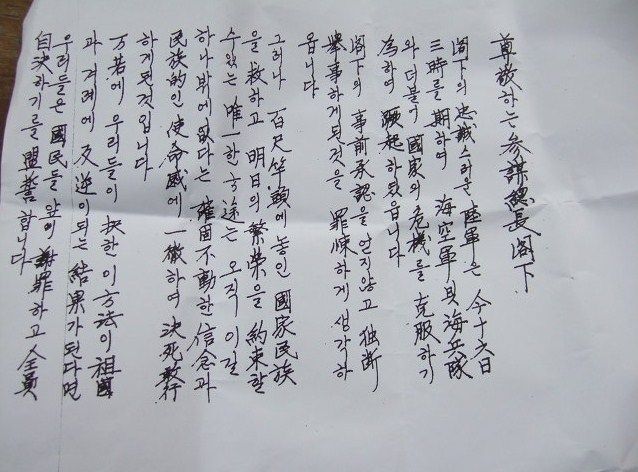 尊敬하는 參謀總長 閣下
閣下의 忠誠스러운 陸軍은 今十六日
三時를 期하여 海空軍 및 海兵隊
와 더불어 國家의 危機를 克服하기
為하여 蹶起하였읍니다
閣下의 事前承認을 얻지않고 独断
擧事하게된것을 罪悚하게 생각하
옵니다
그러나 百尺竿頭에 놓인 國家民族
을 救하고 明日의 繁榮을 約束할
수있는 唯一한 方途는 오직 이길
하나밖에 없다는 確固不動한 信念과
民族的인 使命感에 一徹하여 決死敢行
하게된것입니다
万若에 우리들이 択한 이 方法이 祖國
과 겨레에 反逆이되는 結果가 된다면
우리들은 國民들 앞에 謝罪하고 全員
自決하기를 盟誓합니다